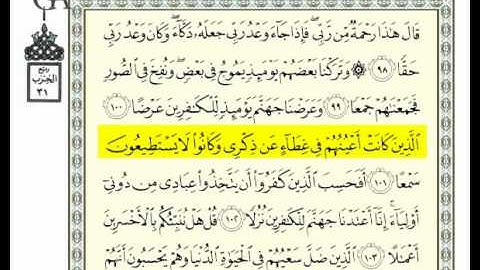 قَالَ هَٰذَا رَحْمَةٌ مِّن رَّبِّي ۖ فَإِذَا جَاءَ وَعْدُ رَبِّي جَعَلَهُ دَكَّاءَ ۖ وَكَانَ وَعْدُ رَبِّي
حَقًّا ٩٨ ۞ وَتَرَكْنَا بَعْضَهُمْ يَوْمَئِذٍ يَمُوجُ فِي بَعْضٍ ۖ وَنُفِخَ فِي الصُّورِ
فَجَمَعْنَاهُمْ جَمْعًا ٩٩ وَعَرَضْنَا جَهَنَّمَ يَوْمَئِذٍ لِّلْكَافِرِينَ عَرْضًا ١٠٠
الَّذِينَ كَانَتْ أَعْيُنُهُمْ فِي غِطَاءٍ عَن ذِكْرِي وَكَانُوا لَا يَسْتَطِيعُونَ
سَمْعًا ١٠١ أَفَحَسِبَ الَّذِينَ كَفَرُوا أَن يَتَّخِذُوا عِبَادِي مِن دُونِي
أَوْلِيَاءَ ۚ إِنَّا أَعْتَدْنَا جَهَنَّمَ لِلْكَافِرِينَ نُزُلًا ١٠٢ قُلْ هَلْ نُنَبِّئُكُم بِالْأَخْسَرِينَ
أَعْمَالًا ١٠٣ الَّذِينَ ضَلَّ سَعْيُهُمْ فِي الْحَيَاةِ الدُّنْيَا وَهُمْ يَحْسَبُونَ أَنَّهُمْ
ربع
الحزب
٣١